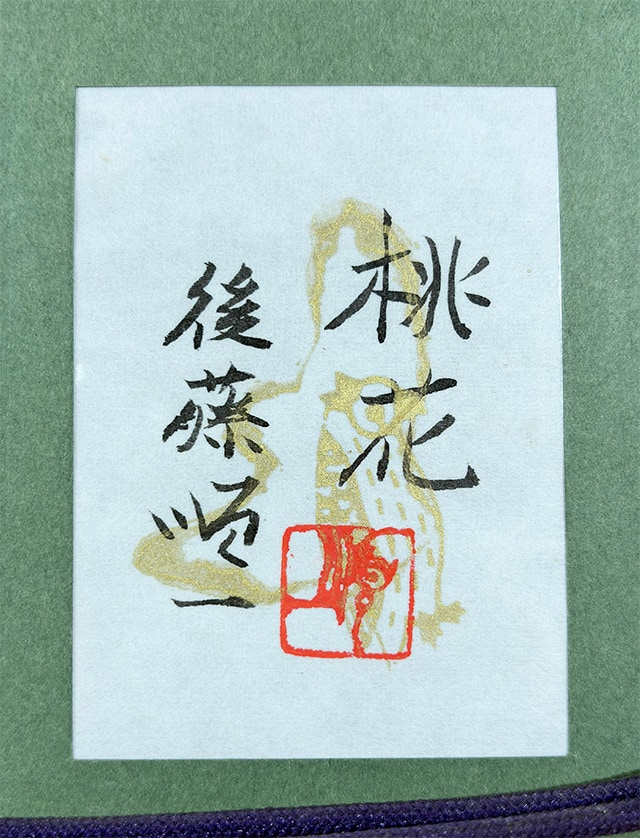 桃花
後藤順一